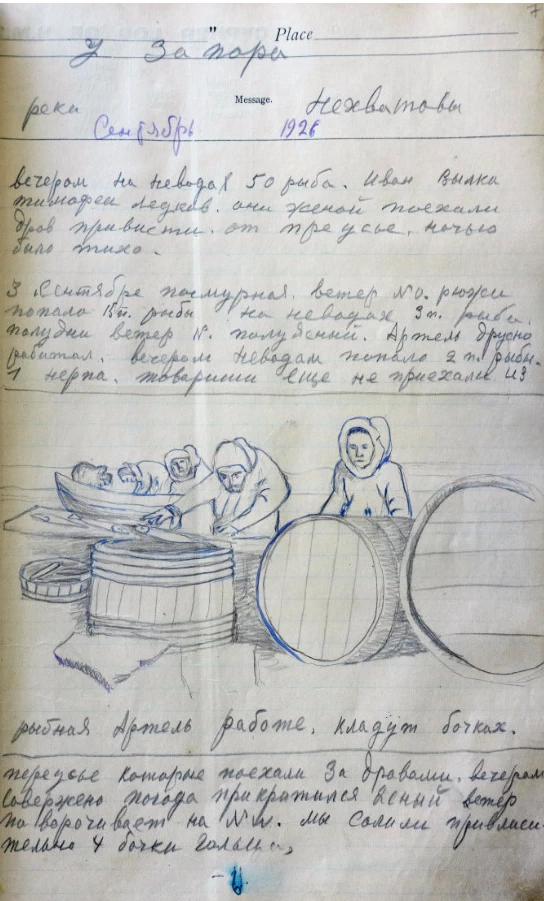 7
" Place
У Запора
Message.
реки Нехватовы
Сентябрь 1926
вечером на неводах 50 рыба. Иван Вылка
тимофеи ледков. они женой поехали
дров привисти. от преусье. ночью
было тихо.
3 Сентябре пасмурная. ветер NO. рюжи
попало 15п. рыбы на неводах 3 п. рыбы.
полудни ветер N. полуясный. Артель друсно
работал. вечером неводам попало 2 п. рыбы.
1 нерпа. товариши еще не приехали из
рыбная Артель работе. кладут бочках.
переусье которые поехали за дравами. вечером
совержено погода прикратился ясный ветер
поворочивает на NW. мы солили приблиси-
тельно 4 бочки гольца,